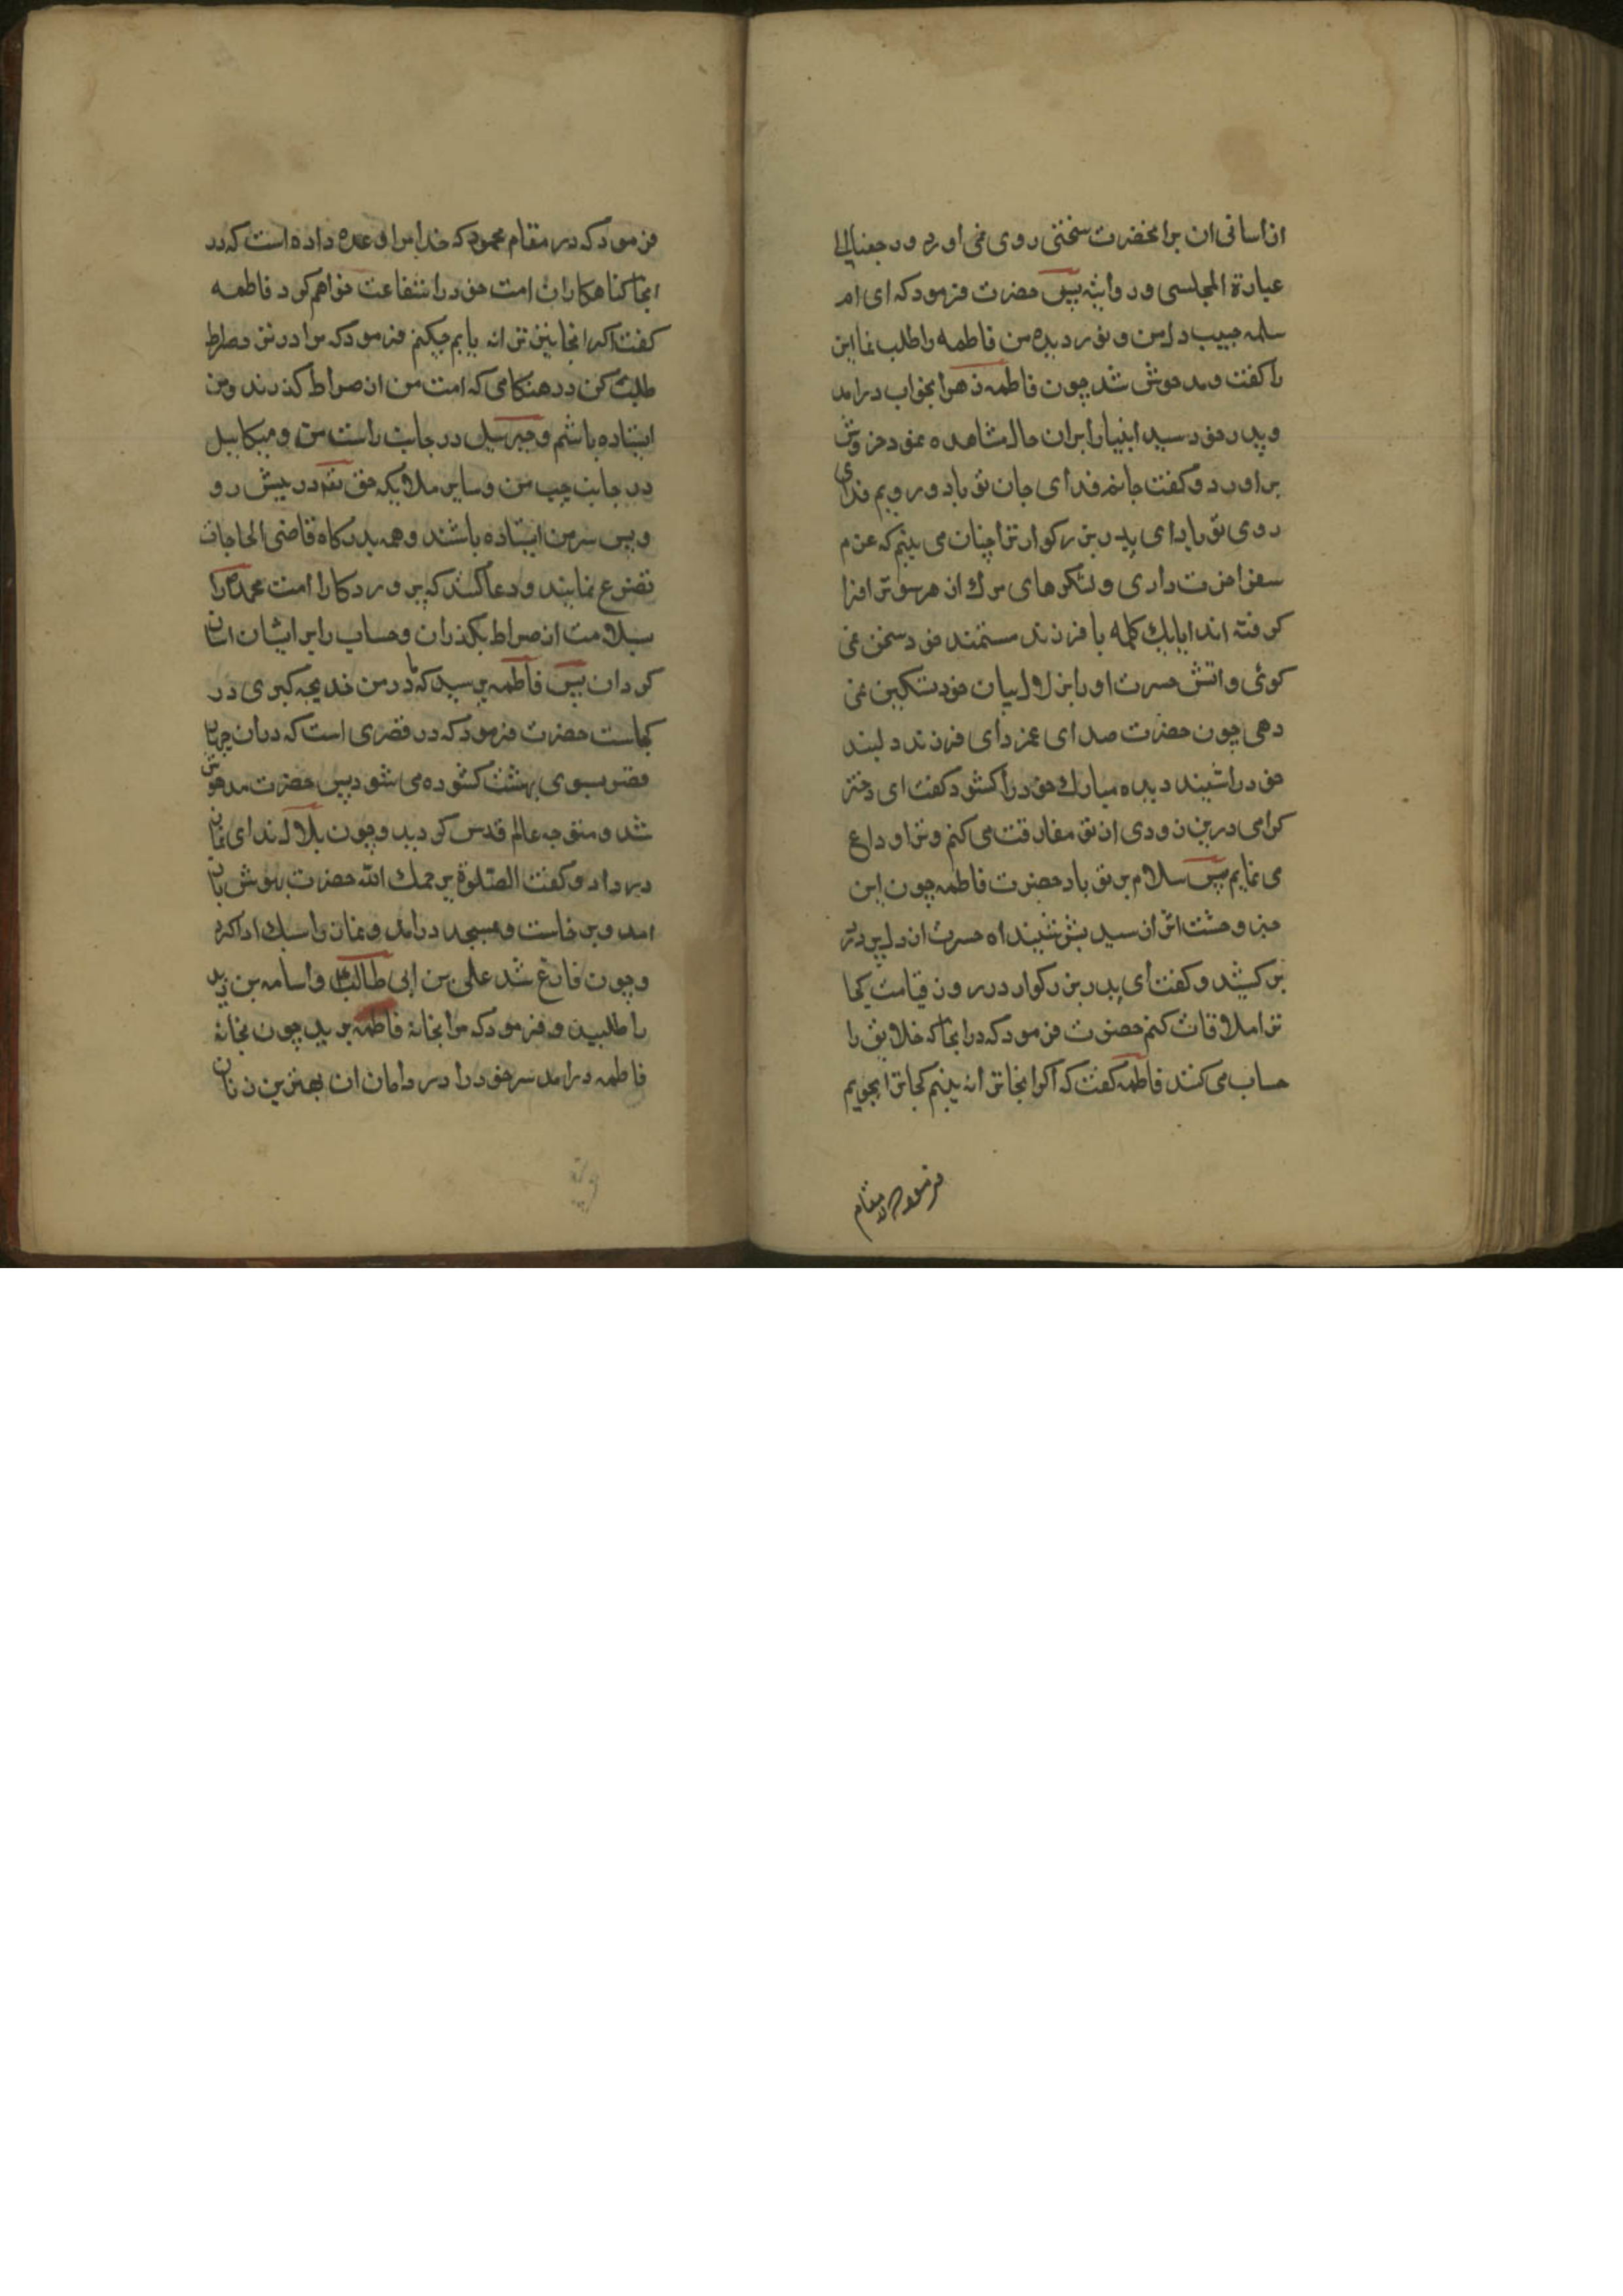 ان اسانی ان برانحضرت سختی روی می اورد ورجعنا الی
عبارة المجلسی و روایته پس حضرت فرمود که ای ام
سلمه حبیب دل من و نور دیده من فاطمه را طلب نما این
را گفت و مدهوش شد چون فاطمه زهرا بخواب درامد
و پدر خود سید انبیا را بران حال مشاهده نمود خروش
براورد و گفت جانم فدای جان تو باد و رویم فدای
روی تو باد ای پدر بزرگوار ترا چنان می بینم که عزم
سفر اخرت داری و لشکرهای مرک از هر سو ترا فرا
گرفته اند ایا یک کلمه با فرزند مستمند خود سخن نمی
گوئی و اتش حسرت او را بزلال بیان خود تسکین نمی
دهی چون حضرت صدای غمزدای فرزند دلبند
خود را شنید دیده مبارک خود را گشود گفت ای دختر
گرامی درین زودی از تو مفارقت می کنم و ترا وداع
می نمایم پس سلام بر تو باد حضرت فاطمه چون این
خبر وحشت اثر از سید بشر شنید اه حسرت از دل پردرد
برکشید و گفت ای پدر بزرگوار در روز قیامت کجا
ترا ملاقات کنم حضرت فرمود که در انجا که خلایق را
حساب می کنند فاطمه گفت که اگر انجا ترا نه بینم کجا ترا بجویم
فرمود که در مقام
فرمود که در مقام محمود که خدا مرا وعده داده است که در
انجا گناهکاران امت خود را شفاعت خواهم کرد فاطمه
گفت اگر انجا نیز ترا نه یابم چکنم فرمود که مرا در نزد صراط
طلب کن در هنگامی که امت من از صراط گذرند و من
ایستاده باشم و جبرئیل در جانب راست من و میکاییل
در جانب چپ من و سایر ملایکه حق تعه در پیش رو
و پس سر من ایستاده باشند و همه بدرگاه قاضی الحاجات
تضرع نمایند و دعا کنند که پروردکارا امت محمد را
بسلامت از صراط بگذران و حساب را بر ایشان اسان
گردان پس فاطمه پرسید که مادر من خدیجه کبری در
کجاست حضرت فرمود که در قصری است که دران چهار
قصر بسوی بهشت گشوده می شود پس حضرت مدهوش
شد و متوجه عالم قدس گردید و چون بلال ندای نماز
در داد و گفت الصلوة یرحمک الله حضرت بهوش باز
امد و برخاست و بمسجد درامد و نماز را سبک ادا کرد
و چون فارغ شد علی بن ابی طالب و اسامه بن زید
را طلبید و فرمود که مرا بخانه فاطمه برید چون بخانه
فاطمه درامد سر خود را در دامان ان بهترین زنان